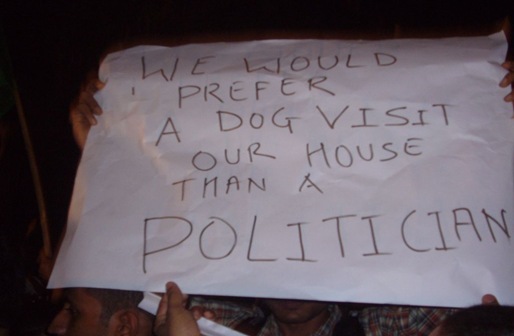 WE WOULD
PREFER
A DOG VISIT
OUR HOUSE
THAN A
POLITICIAN